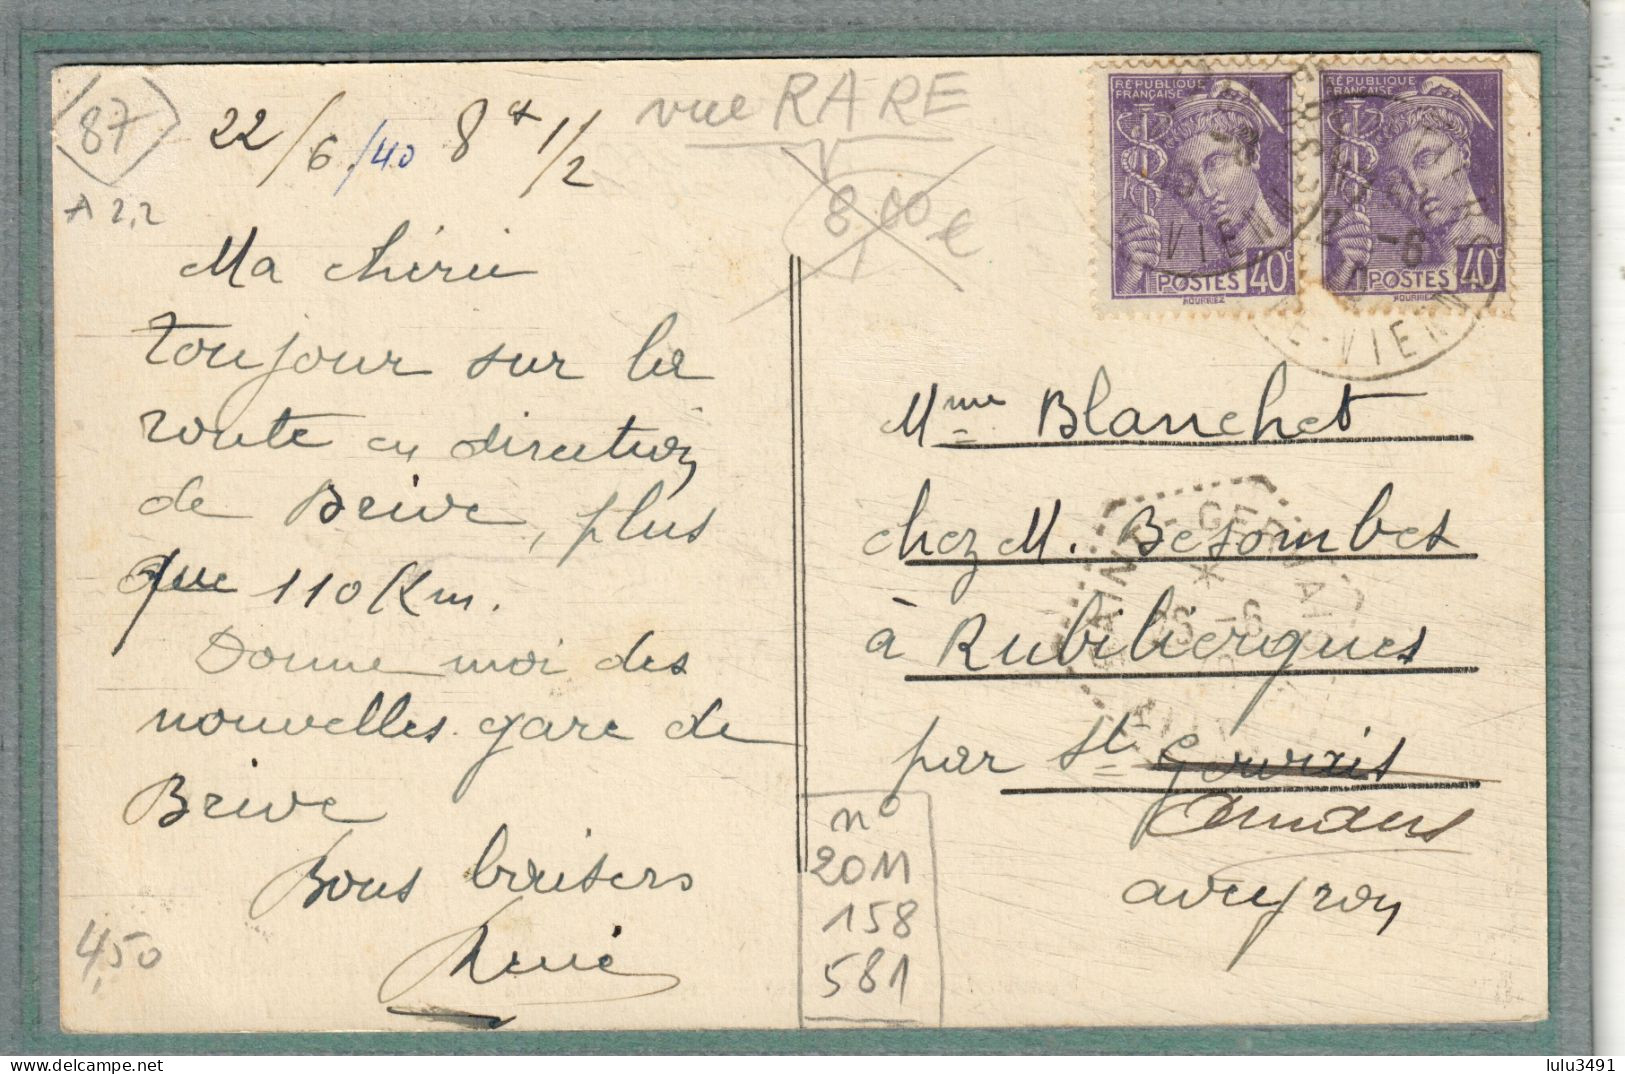 87
A 2,2
22/6/40 8h 1/2
vue RARE
8,00 €
Ma chérie
toujour sur la
route en direction
de Brive, plus
que 110 Km.
Donne moi des
nouvelles gare de
Brive
Bons baisers
René
4,50
RÉPUBLIQUE
FRANÇAISE
POSTES 40c
HOURRIEZ
RÉPUBLIQUE
FRANÇAISE
POSTES 40c
HOURRIEZ
-6
VIEN
22 -6
TE-VIENN
Mme Blanchet
chez M. Besombes
à Rubihergues
par St Gervais
Amans
aveyron
SAINT-GERMAI
*
26 -6
no
2011
158
581
delcampe.net
lulu3491